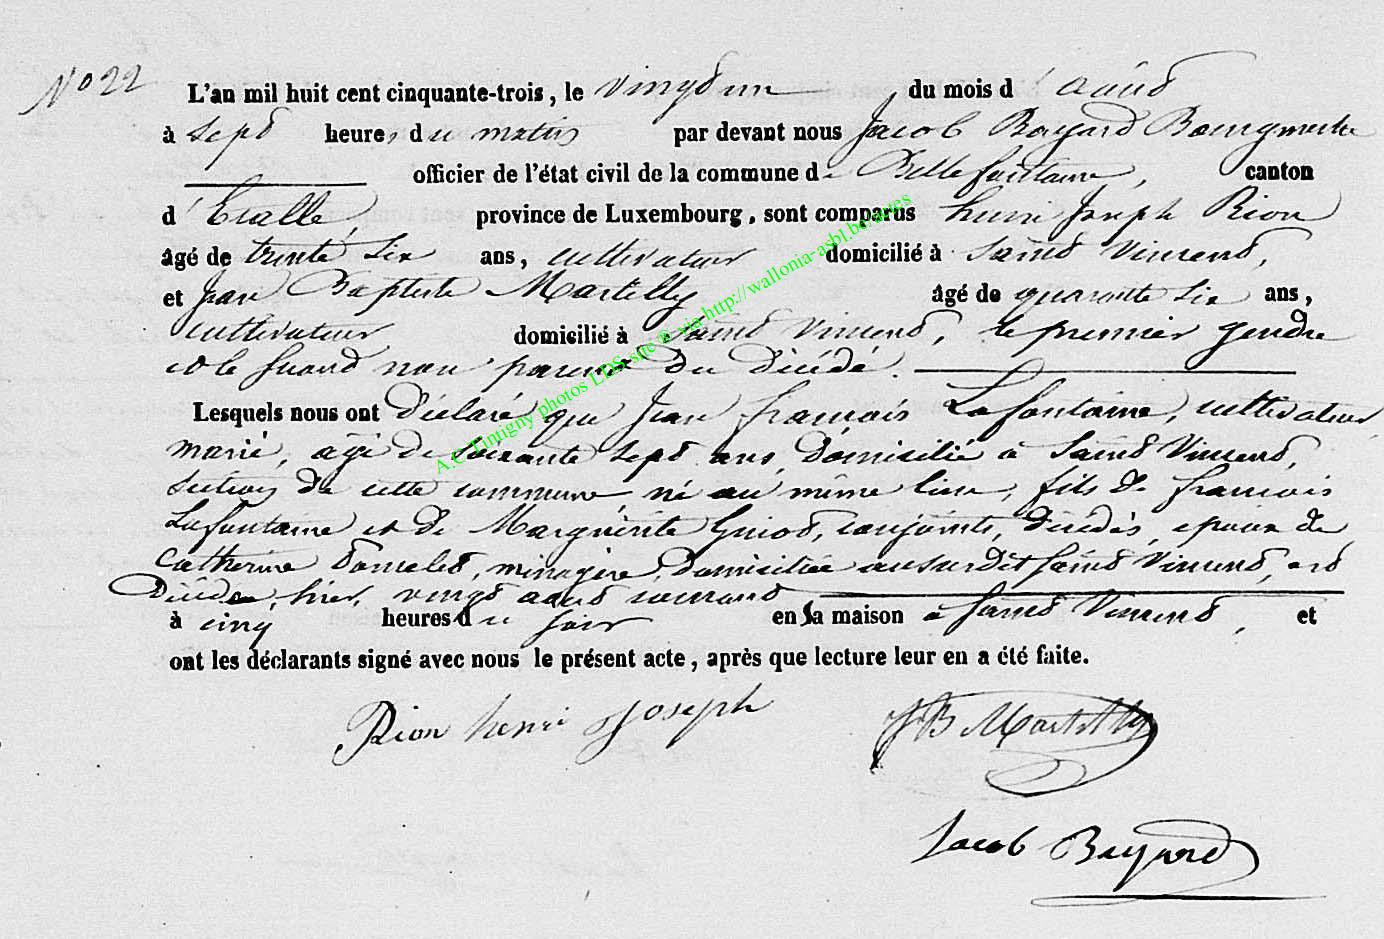 No 22
L'an mil huit cent cinquante-trois, le vingt un du mois d'août
à sept heures du matin par devant nous Jacob Bayard Bourgmestre
officier de l'état civil de la commune de Bellefontaine, canton
d'Etalle, province de Luxembourg, sont comparus henri Joseph Rion
âgé de trente six ans, cultivateur domicilié à Saint Vincent,
et Jean Baptiste Martilly âgé de quarante six ans,
cultivateur domicilié à Saint Vincent, le premier gendre
et le second non parent du décédé.
Lesquels nous ont déclaré que Jean françois Lafontaine, cultivateur,
marié, âgé de soixante sept ans, domicilié à Saint Vincent,
section de cette commune né au même lieu, fils de francois
Lafontaine et de Marguerite Guiot, conjoints, décédés, epoux de
Catherine , ménagère, domiciliée au susdit Saint Vincent, est
décédé, hier, vingt août courant
à cinq heures du soir en sa maison à Saint Vincent, et
ont les déclarants signé avec nous le présent acte, après que lecture leur en a été faite.
Rion henri Joseph JB Martilly
Jacob Bayard
A.C. Tintigny photos LDS, site © via http://wallonia-asbl.be/actes